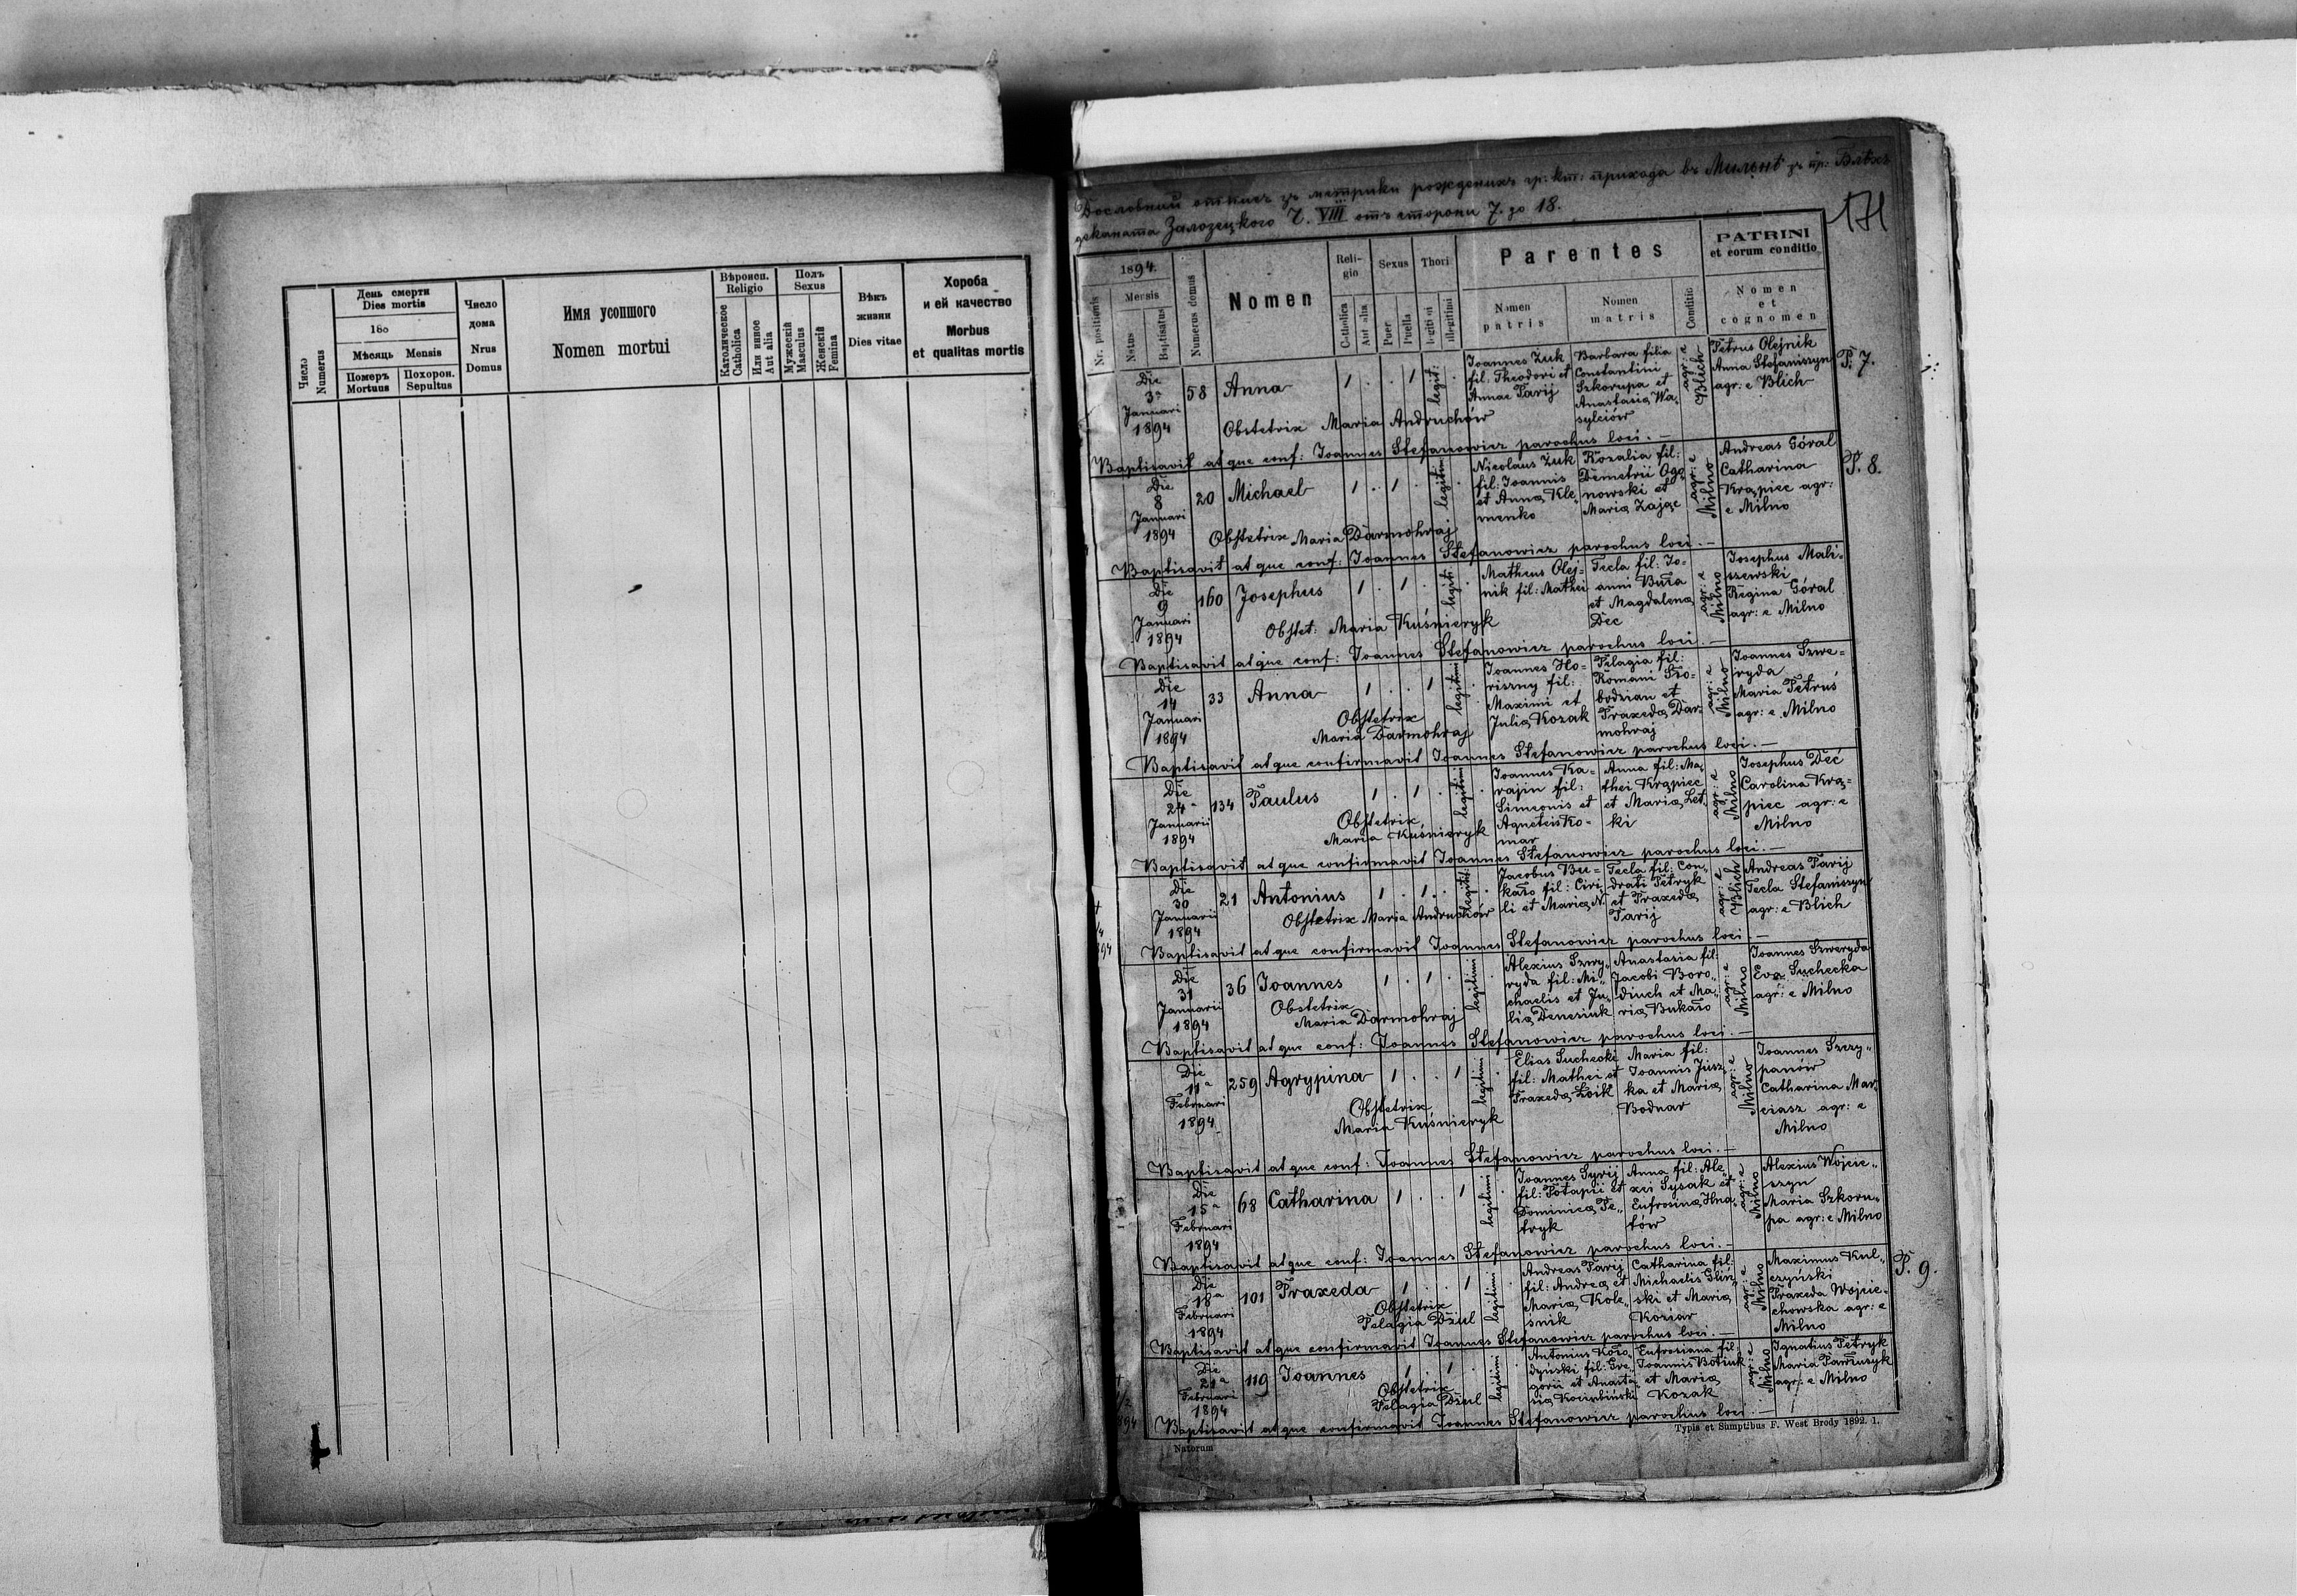 Число
Numerus
День смерти
Dies mortis
188
Мѣсяць Mensis
Померъ
Mortuus
Похорон.
Sepultus
Число
дома
Nrus
Domus
Имя усопшого
Nomen mortui
Вѣроисп.
Religio
Католическое
Catholica
Или инное
Aut alia
Полъ
Sexus
Мужескій
Masculus
Женскій
Femina
Вѣкъ
жизни
Dies vitae
Хороба
и ей качество
Morbus
et qualitas mortis
Дословный отпись зъ метрики рожденихъ гр: кт: прихода въ Милнѣ зъ пр: Блѣхъ
деканата Залозецкого Ч. VIII отъ сторони 7. до 18.
171
Nr. positionis
1894.
Mensis
Natus
Baptisatus
Numerus domus
Nomen
Reli-
gio
Catholica
Aut alia
Sexus
Puer
Puella
Thori
legitimi
illegitimi
Parentes
Nomen
patris
Nomen
matris
Conditio
PATRINI
et eorum conditio
Nomen
et
cognomen
Die
3a
Januari
1894
58
Anna
1 . . 1
legit:
Joannes Żuk
fil: Theodori et
Annae Parij
Barbara filia
Constantini
Szkorupa et
Anastasia Wa-
sylciów
agr: e
Blich
Petrus Olejnik
Anna Stefaniszyn
agr: e Blich
P. 7.
Obstetrix Maria Andruchów
Baptisavit atque conf: Joannes Stefanowicz parochus loci. —
Die
8
Januari
1894
20
Michael
1 . 1 .
legitim
Nicolaus Żuk
fil: Joannis
et Anna Kle-
menko
Rozalia fil:
Demetrii Ogo-
nowski et
Maria Zając
agr: e
Milno
Andreas Góral
Catharina
Krąpiec agr:
e Milno
P. 8.
Obstetrix Maria Darmohraj
Baptisavit atque conf: Joannes Stefanowicz parochus loci. —
Die
9
Januari
1894
160
Josephus
1 . 1 .
legiti
Matheus Olej-
nik fil: Mathei
Tecla fil: Jo-
anni Buła
et Magdalena
Dec
agr: e
Milno
Josephus Mali-
szewski
Regina Góral
agr: e Milno
Obstet: Maria Kuśnieryk
Baptisavit atque conf: Joannes Stefanowicz parochus loci. —
Die
14
Januari
1894
33
Anna
1 . . 1
legitimi
Joannes Ho-
riszny fil:
Maximi et
Julia Kozak
Pelagia fil:
Romani Sło-
bodzian et
Praxeda Dar-
mohraj
agr: e
Milno
Joannes Szwe-
ryda
Maria Petruś
agr: e Milno
Obstetrix
Maria Darmohraj
Baptisavit atque confirmavit Joannes Stefanowicz parochus loci. —
Die
24a
Januarii
1894
134
Paulus
1 . 1 .
legitimi
Joannes Ka-
rajin fil:
Simeonis et
Agnetis Ko-
mar
Anna fil: Ma-
thei Krąpiec
et Maria Let-
ki
agr: e
Milno
Josephus Deć
Carolina Krą-
piec agr: e
Milno
Obstetrix
Maria Kuśnieryk
Baptisavit atque confirmavit Joannes Stefanowicz parochus loci. —
Die
30
Januarii
1894
21
Antonius
1 . 1 .
legiti
Jacobus Bu-
kało fil: Ciri-
li et Maria N.
Tecla fil: Con-
drati Petryk
et Praxeda
Parij
agr: e
Blich
Andreas Parij
Tecla Stefaniszyn
agr: e Blich
Obstetrix Maria Andruchów
Baptisavit atque confirmavit Joannes Stefanowicz parochus loci. —
Die
31
Januarii
1894
36
Joannes
1 . 1 .
legitimi
Alexius Szwy-
ryda fil: Mi-
chaelis et Ju-
lia Denesiuk
Anastasia fil:
Jacobi Boro-
diuch et Ma-
ria Bukało
agr: e
Milno
Joannes Szweryda
Eva Suchecka
agr: e Milno
Obstetrix
Maria Darmohraj
Baptisavit atque conf: Joannes Stefanowicz parochus loci. —
Die
11a
Februari
1894
259
Agrypina
1 . . 1
legitimi
Elias Suchecki
fil: Mathei et
Praxeda Łoik
Maria fil:
Joannis Jusz-
ka et Maria
Bodnar
agr: e
Milno
Joannes Szczy-
panów
Catharina Mar-
ciasz agr: e
Milno
Obstetrix
Maria Kuśnieryk
Baptisavit atque conf: Joannes Stefanowicz parochus loci. —
Die
15a
Februari
1894
68
Catharina
1 . . 1
legitimi
Joannes Syrij
fil: Potapii et
Dominica Pe-
tryk
Anna fil: Ale-
xii Sysak et
Eufrosina Hna-
tów
agr: e
Milno
Alexius Wojcie-
szyn
Maria Szkoru-
pa agr: e Milno
Baptisavit atque conf: Joannes Stefanowicz parochus loci. —
Die
18a
Februari
1894
101
Praxeda
1 . . 1
legitimi
Andreas Parij
fil: Andrea et
Maria Kole-
snik
Catharina fil:
Michaelis Gliń-
ski et Maria
Koziar
agr: e
Milno
Maximus Kul-
czyński
Praxeda Wojcie-
chowska agr: e
Milno
P. 9.
Obstetrix
Pelagia Dziul
Baptisavit atque confirmavit Joannes Stefanowicz parochus loci. —
Die
21a
Februari
1894
119
Joannes
1 1
legitimi
Antonius Koło-
dyński fil: Gre-
gorii et Anasta-
sia Kociubiński
Eufrosiana fil:
Joannis Botiuk
et Maria
Kozak
agr: e
Milno
Ignatius Petryk
Maria Pawlusyk
agr: e Milno
Obstetrix
Pelagia Dziul
Baptisavit atque confirmavit Joannes Stefanowicz parochus loci. —
Natorum
Typis et Sumptibus F. West Brody 1892. 1.